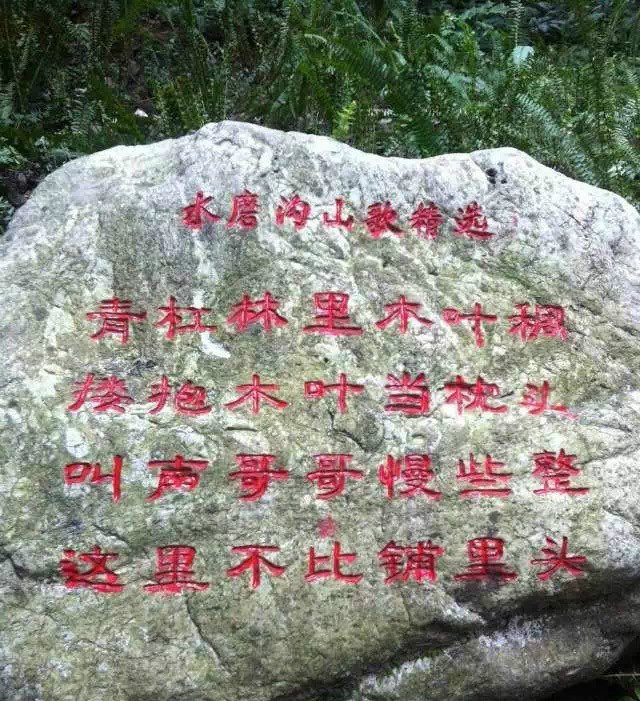 水磨沟山歌精选
青杠林里木叶稠
搂抱木叶当枕头
叫声哥哥慢些整
这里不比铺里头